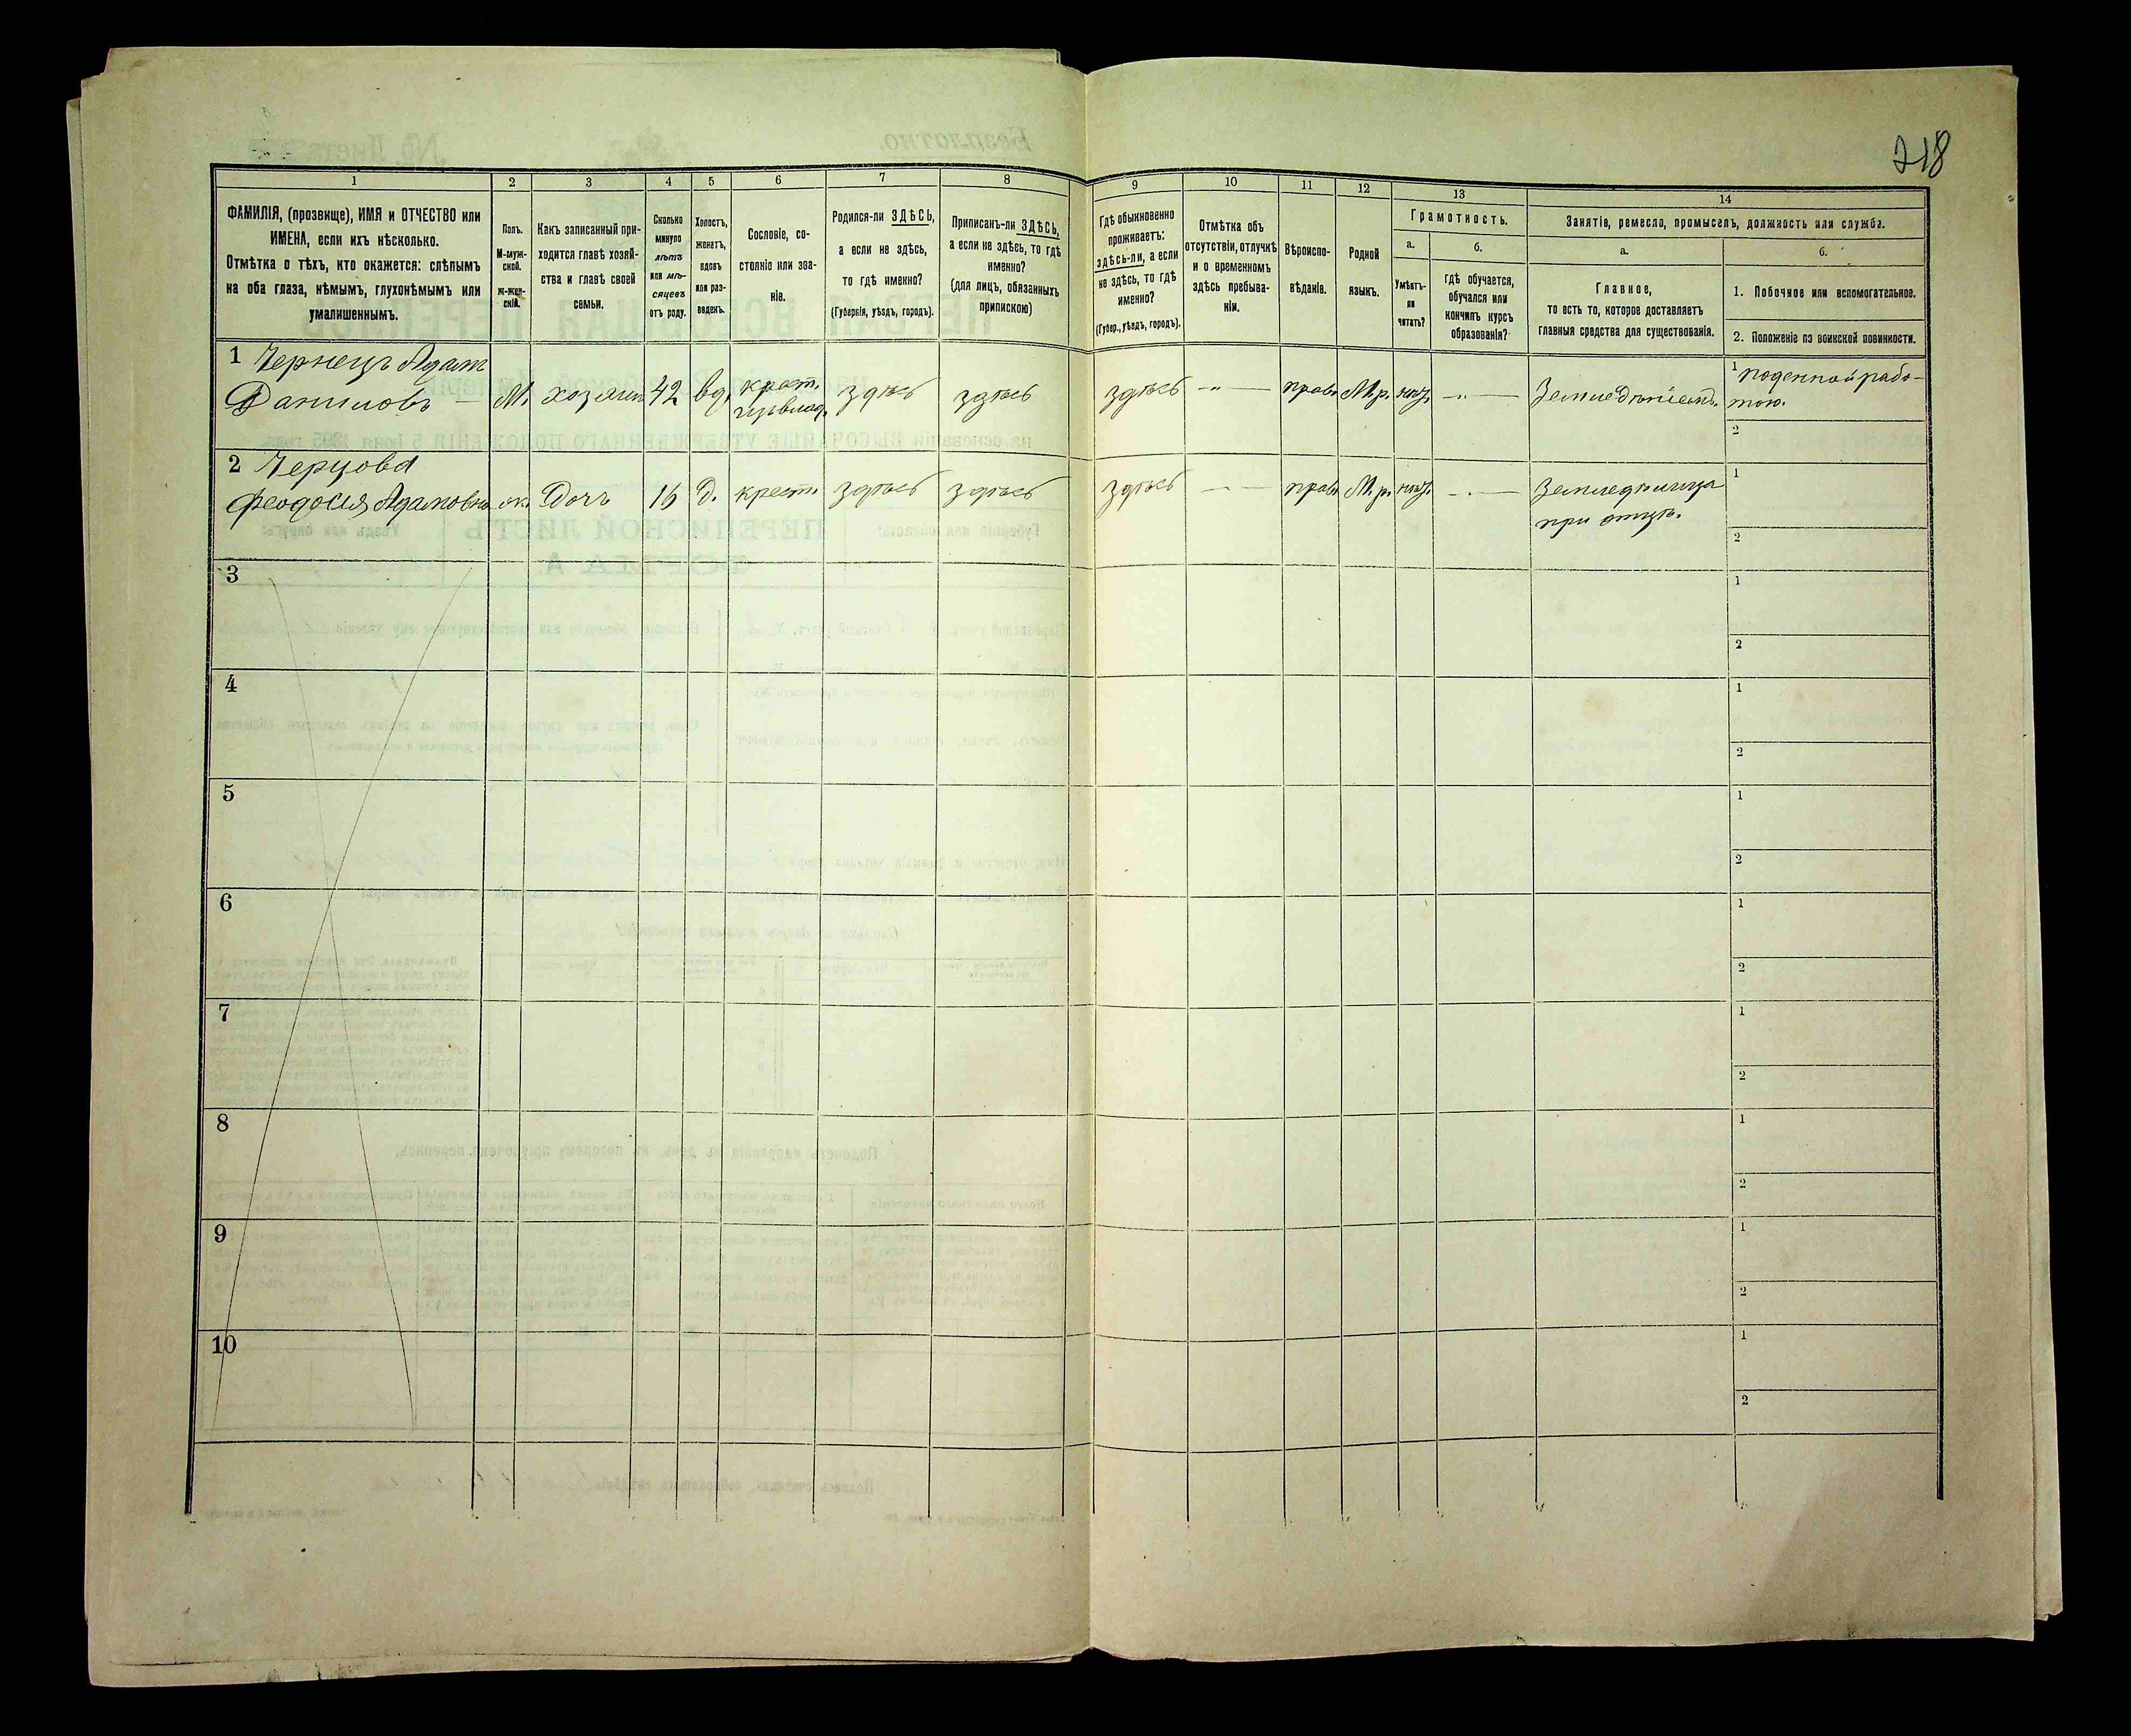 218
1
2
3
4
5
6
7
8
9
10
11
12
13
14
ФАМИЛІЯ, (прозвище), ИМЯ и ОТЧЕСТВО или
ИМЕНА, если ихъ нѣсколько.
Отмѣтка о тѣхъ, кто окажется: слѣпымъ
на оба глаза, нѣмымъ, глухонѣмымъ или
умалишеннымъ.
Полъ.
М-муж-
ской.
ж-жен-
скій.
Какъ записанный при-
ходится главѣ хозяй-
ства и главѣ своей
семьи.
Сколько
минуло
лѣтъ
или мѣ-
сяцевъ
отъ роду.
Холостъ,
женатъ,
вдовъ
или раз-
веденъ.
Сословіе, со-
стояніе или зва-
ніе.
Родился-ли ЗДѢСЬ,
а если не здѣсь,
то гдѣ именно?
(Губернія, уѣздъ, городъ).
Приписанъ-ли ЗДѢСЬ,
а если не здѣсь, то гдѣ
именно?
(для лицъ, обязанныхъ
припискою)
Гдѣ обыкновенно
проживаетъ:
здѣсь-ли, а если
не здѣсь, то гдѣ
именно?
(Губер., уѣздъ, городъ).
Отмѣтка объ
отсутствіи, отлучкѣ
и о временномъ
здѣсь пребыва-
ніи.
Вѣроиспо-
вѣданіе.
Родной
языкъ.
Грамотность.
а.
Умѣетъ-
ли
читать?
б.
гдѣ обучается,
обучался или
кончилъ курсъ
образованія?
Занятіе, ремесло, промыселъ, должность или служба.
а.
Главное,
то есть то, которое доставляетъ
главныя средства для существованія.
б.
1. Побочное или вспомогательное.
2. Положеніе по воинской повинности.
1 Чернецъ Адам
Даниловъ — М. хозяинъ 42 вд. крест. здѣсь здѣсь здѣсь — " — прав. М.р. — " —
1 поденной рабо-
тою.
2
2 Черцова
Феодосия Адамовна ж. Дочь 16 д. крест. здѣсь здѣсь здѣсь — — прав. М.р. — . —
при отцѣ.
1
2
3
1
2
4
1
2
5
1
2
6
1
2
7
1
2
8
1
2
9
1
2
10
1
2